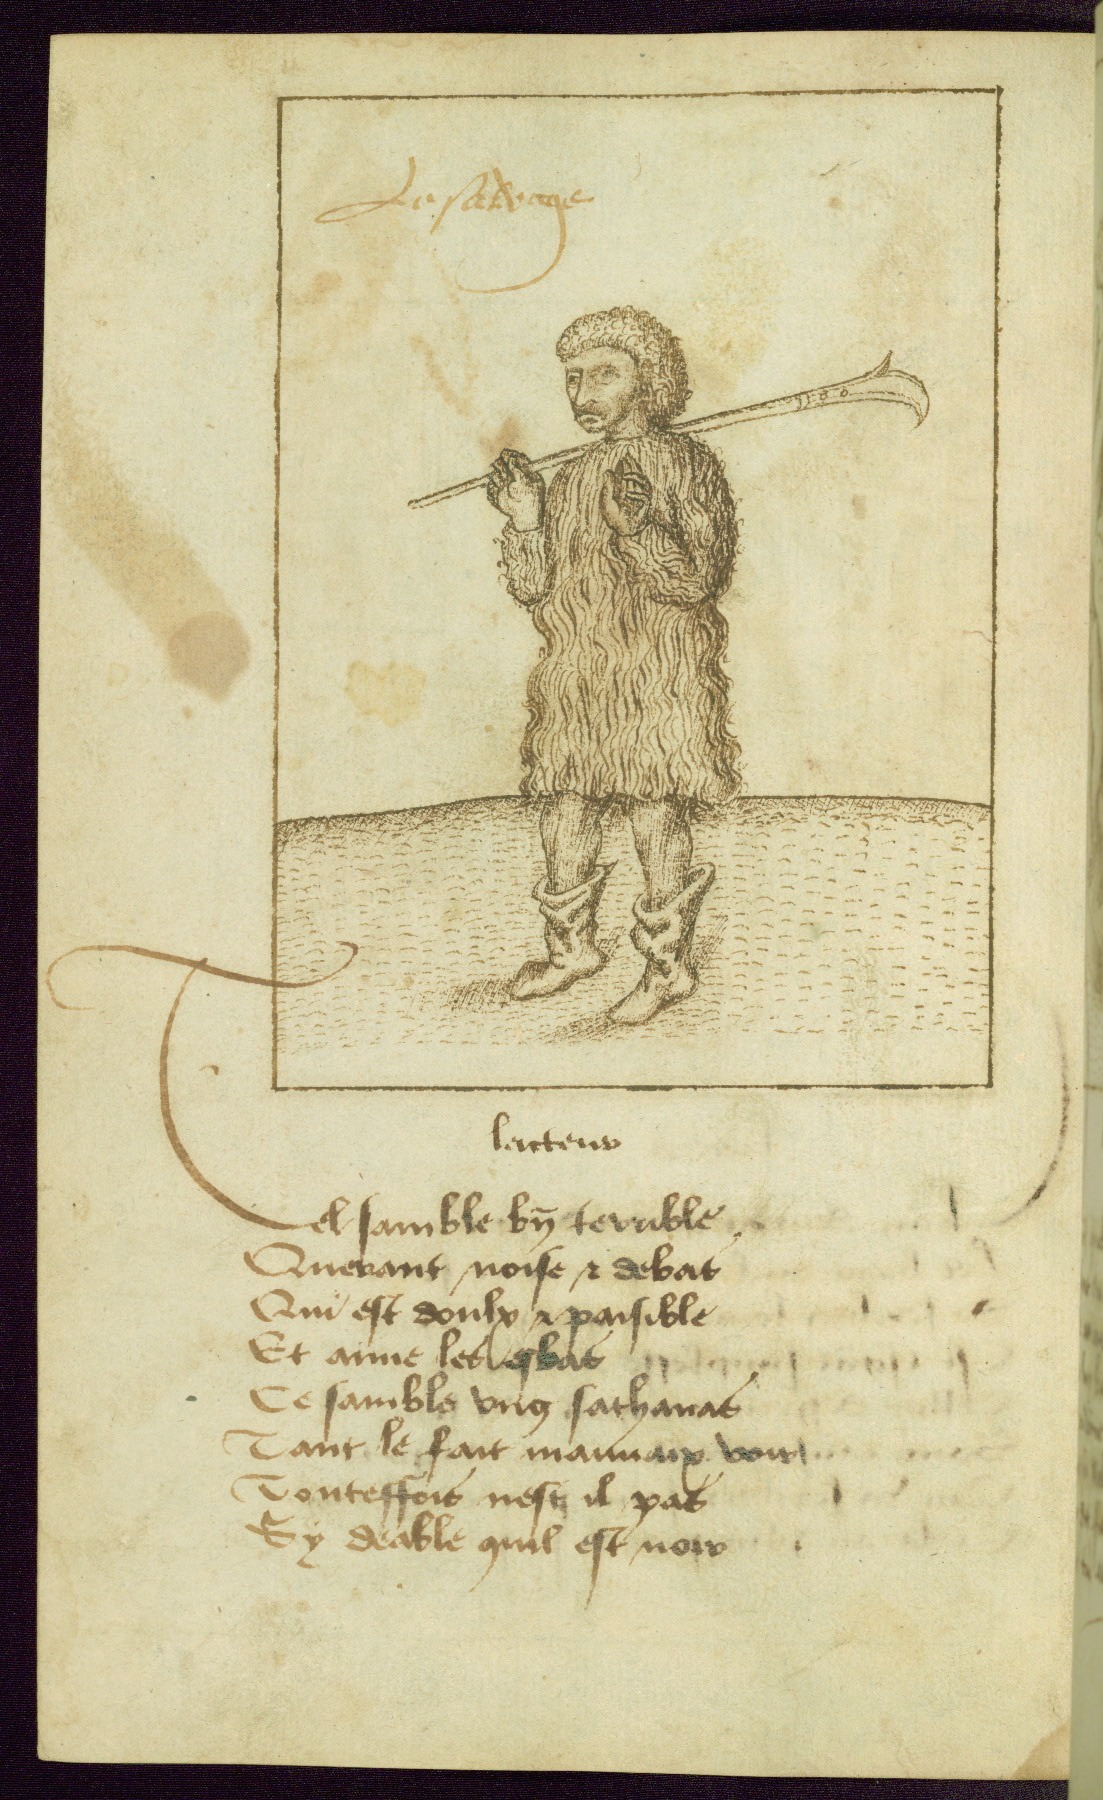 Le salvage
lacteur
Tel samble bñ terrible
Querant noise & debat
Qui est doulx & paisible
Et aime les esbas
Ce samble ung sathanas
Tant le fait mauuaix voir
Touteffois nest il pas
Sy deable quil est noir